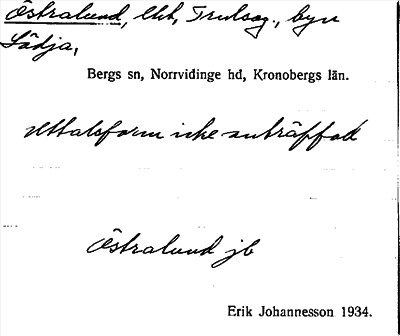 Östralund, lht, Trulsag., byn
Södja,
Bergs sn, Norrvidinge hd, Kronobergs län.
uttalsform icke anträffad
Östralund jb
Erik Johannesson 1934.